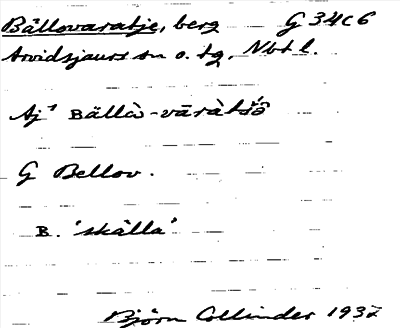 Bällovaratje, berg G 34c6
Arvidsjaurs sn o. tg, Nbt l.
Aj¹ Bällà-vāràtjȧ̂
G Bellov.
B. 'skälla'
Björn Collinder 1937